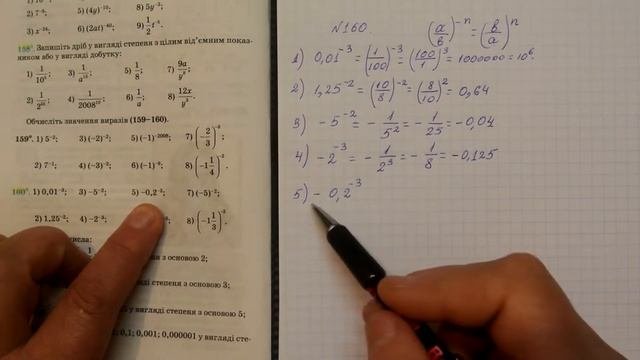 2) 7⁻⁹; 5) (4y)⁻¹⁰; 8) 5y⁻³;
3) x⁻²⁴; 6) (2at)⁻⁴⁰; 9)
158°. Запишіть дріб у вигляді степеня з цілим від'ємним показ-
ником або у вигляді добутку:
1) 3) 5) 1/8; 7) 9a/
2) 4) 6) 1/a; 8) 12x/
Обчисліть значення виразів (159–160).
159°. 1) 5⁻²; 3) (−2)⁻²; 5) (−1)⁻²⁰⁰⁸; 7) (−2/3)
2) 7⁻¹; 4) (−3)⁻²; 6) (−1)⁻⁹; 8) (−1 1/4)
160°. 1) 0,01⁻³; 3) −5⁻²; 5) −0,2⁻³; 7) (−5)⁻²;
2) 1,25⁻²; 4) −2⁻³; 8) (−1 1/3)
числа:
з основою 2;
степеня з основою 3;
у вигляді степеня з основою 5;
0,1; 0,001; 0,000001 у вигляді сте-
N160. (a/b)⁻ⁿ = (b/a)ⁿ
1) 0,01⁻³ = (1/100)⁻³ = (100/1)³ = 1000000 = 10⁶.
2) 1,25⁻² = (10/8)⁻² = (8/10)² = 0,64
3) −5⁻² = − 1/5² = − 1/25 = −0,04
4) −2⁻³ = − 1/2³ = − 1/8 = −0,125
5) − 0,2⁻³